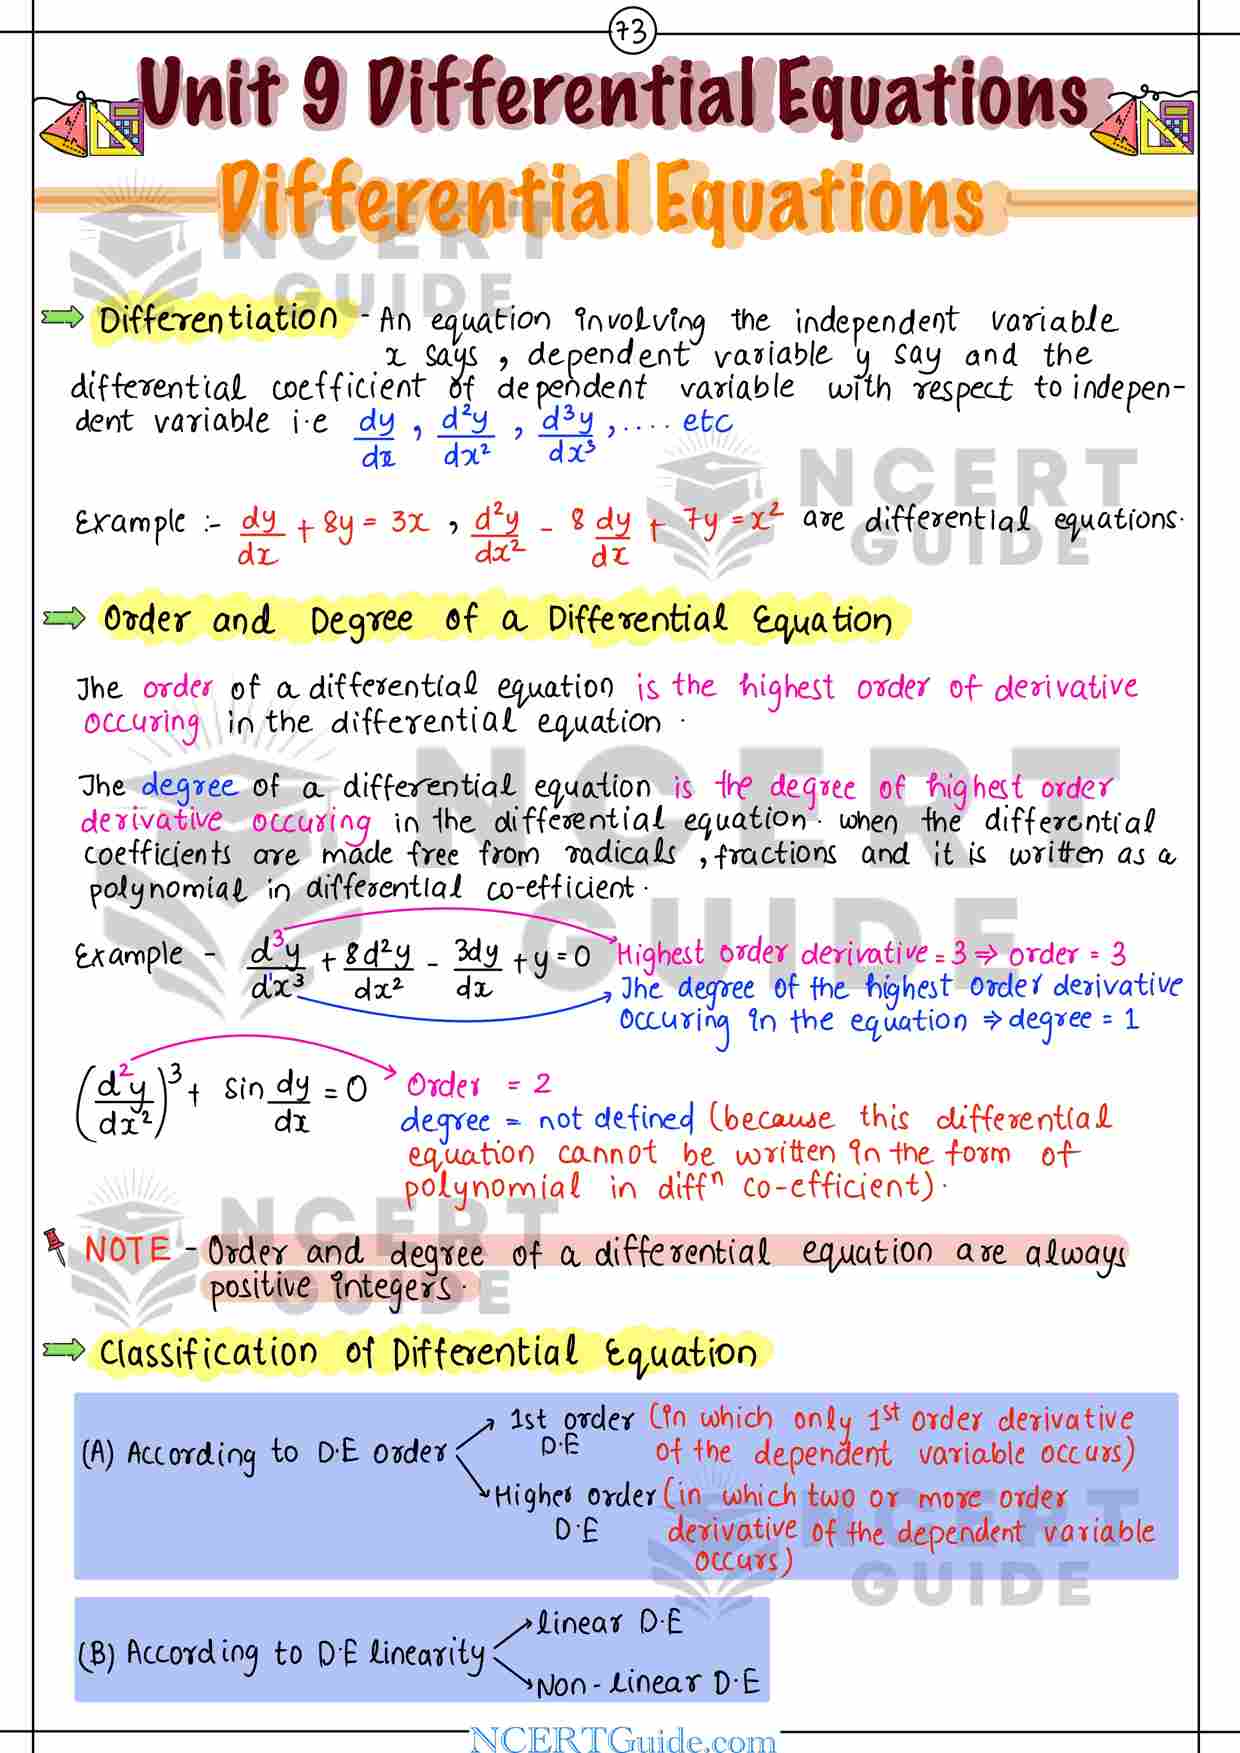 73
Unit 9 Differential Equations
Differential Equations
NCERT
GUIDE
⇒ Differentiation - An equation involving the independent variable
x says, dependent variable y say and the
differential coefficient of dependent variable with respect to indepen-
dent variable i.e dy/dx, d²y/dx², d³y/dx³, .... etc
NCERT
GUIDE
Example :- dy/dx + 8y = 3x, d²y/dx² - 8 dy/dx + 7y = x² are differential equations.
⇒ Order and Degree of a Differential Equation
The order of a differential equation is the highest order of derivative
occuring in the differential equation.
NCERT
GUIDE
The degree of a differential equation is the degree of highest order
derivative occuring in the differential equation. when the differential
coefficients are made free from radicals, fractions and it is written as a
polynomial in differential co-efficient.
Example - d³y/d¹x³ + 8d²y/dx² - 3dy/dx + y = 0 Highest order derivative = 3 ⇒ order = 3
The degree of the highest order derivative
occuring in the equation ⇒ degree = 1
(d²y/dx²)³ + sin dy/dx = 0 Order = 2
degree = not defined (because this differential
equation cannot be written in the form of
polynomial in diffⁿ co-efficient).
NCERT
GUIDE
NOTE - Order and degree of a differential equation are always
positive integers.
⇒ Classification of Differential Equation
(A) According to D.E order
1st order D.E (in which only 1st order derivative
of the dependent variable occurs)
Higher order D.E (in which two or more order
derivative of the dependent variable
occurs)
NCERT
GUIDE
(B) According to D.E linearity
linear D.E
Non-linear D.E
NCERTGuide.com